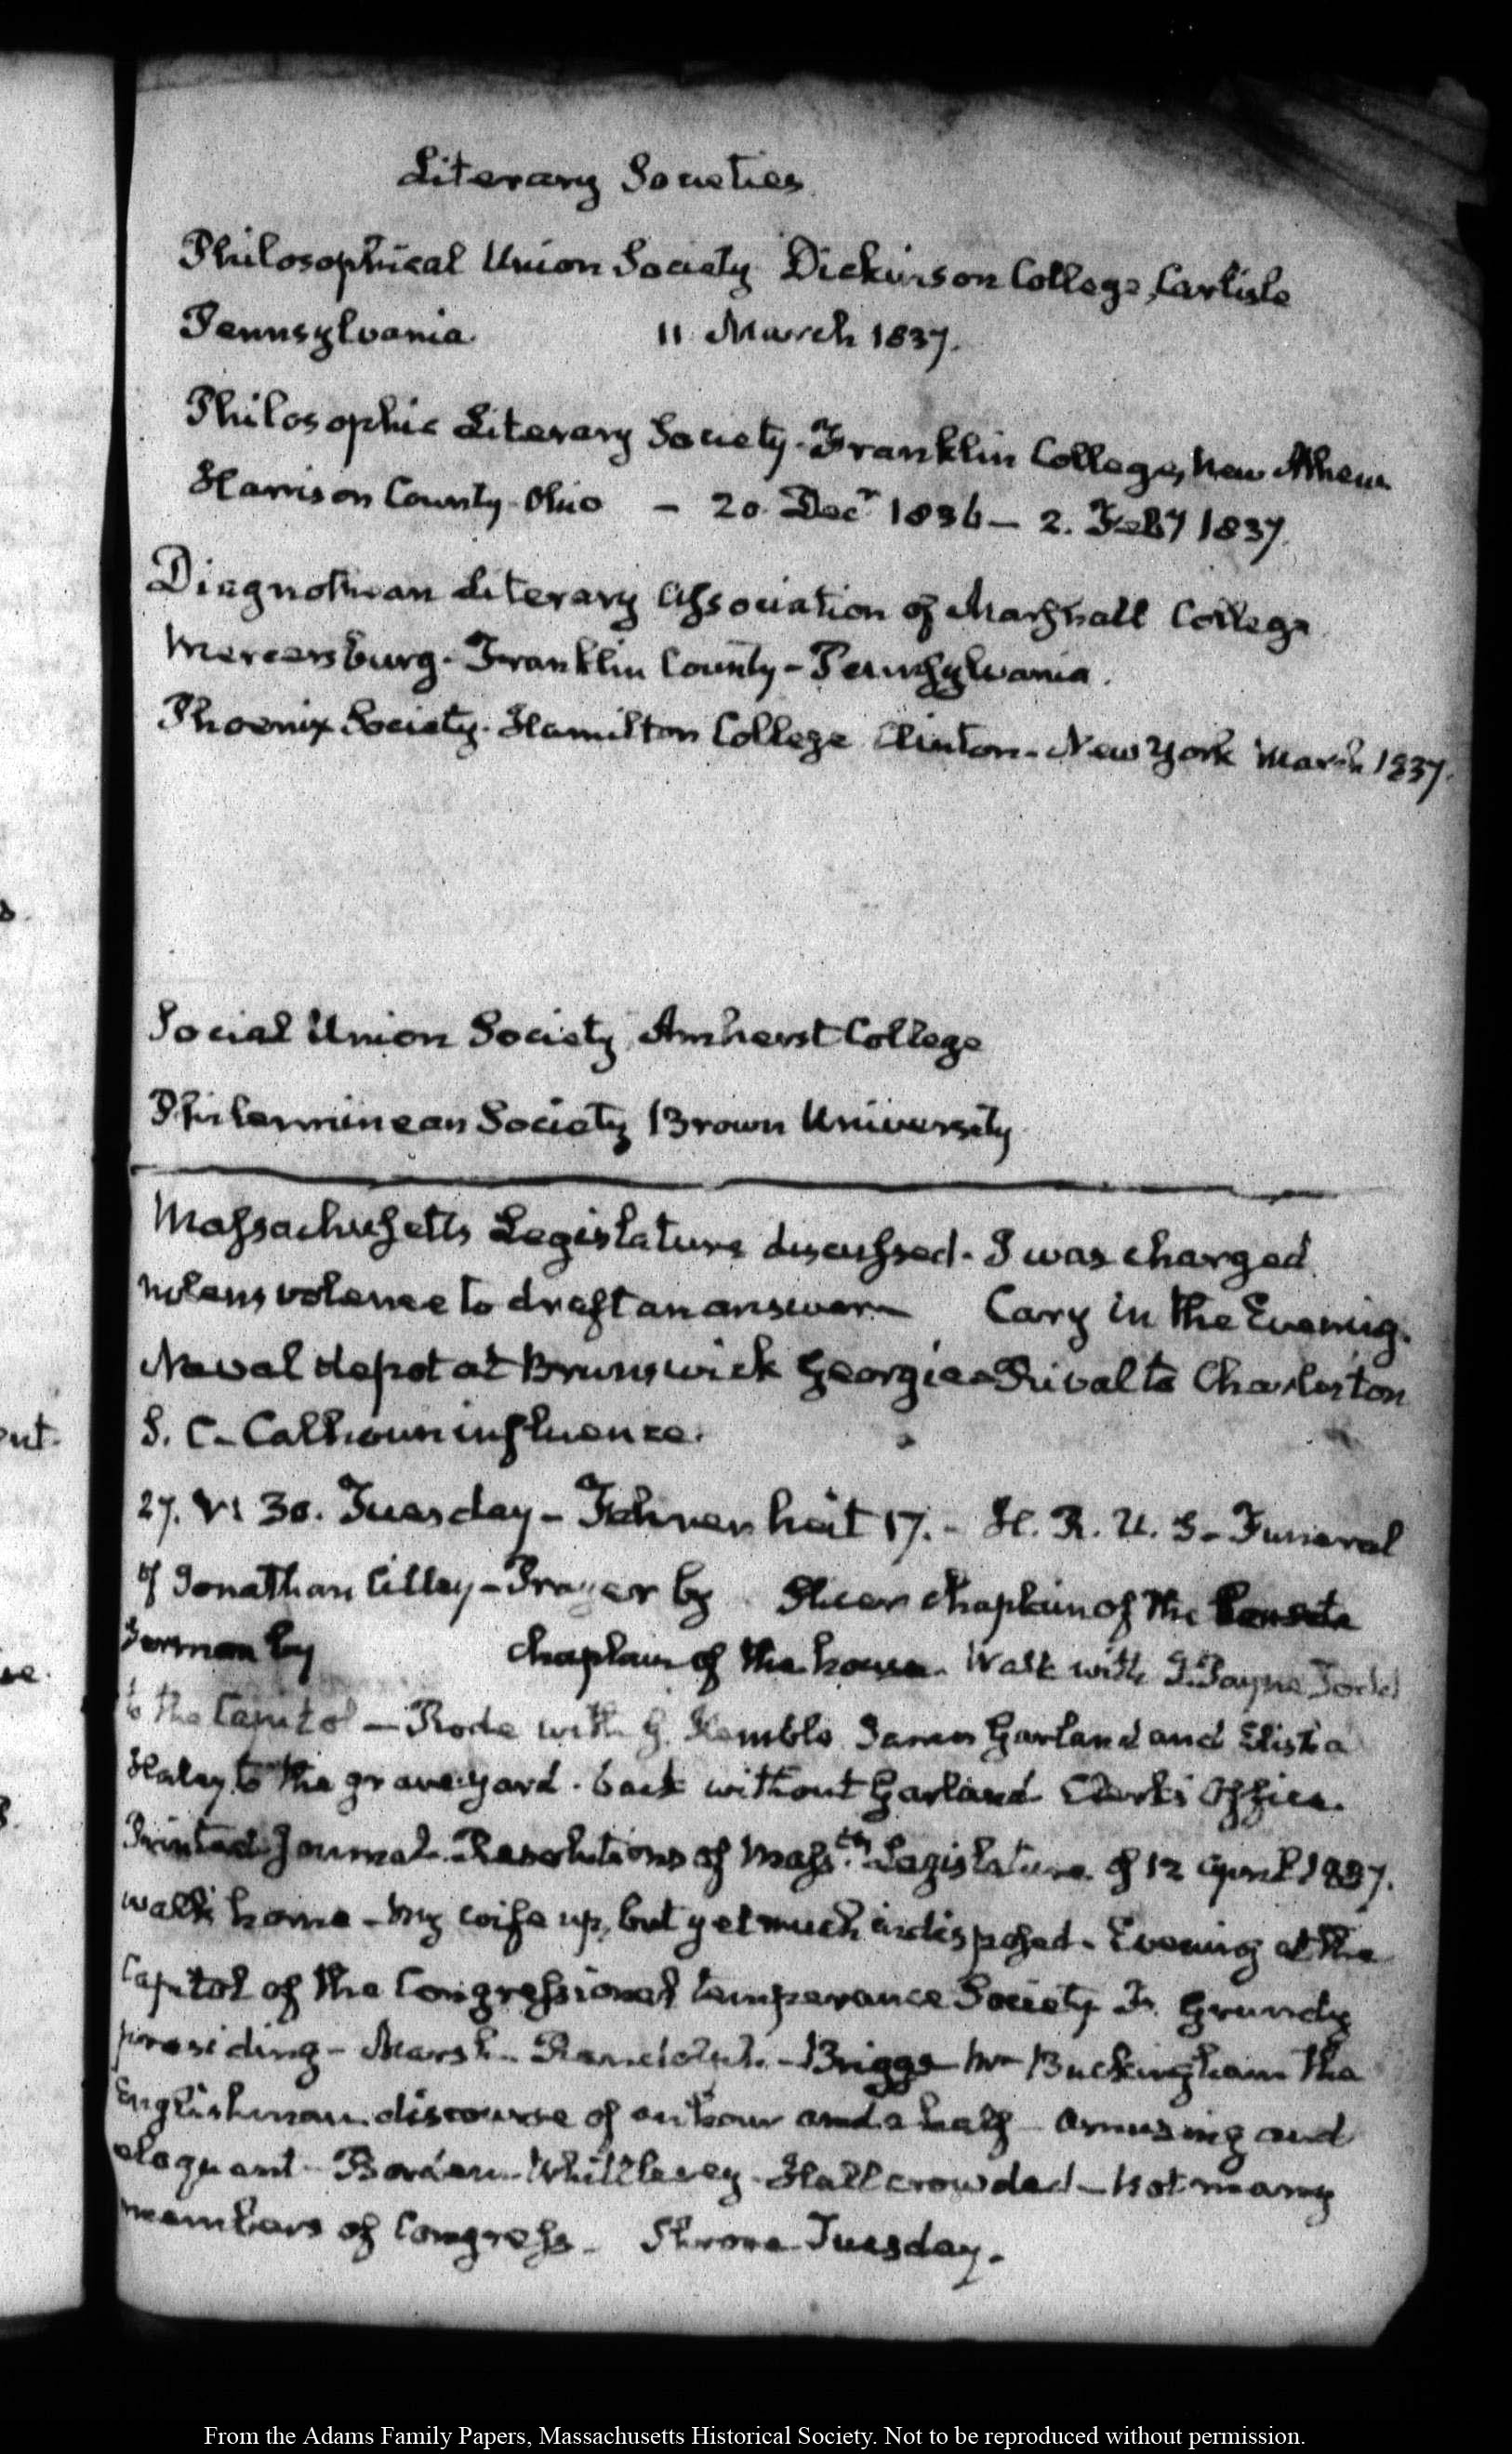 Literary Societies
Philosophical Union Society Dickinson College, Carlisle
Pennsylvania. 11 March 1837.
Philosophic Literary Society. Franklin College, New Athens
Harrison County. Ohio — 20. Decr 1836 — 2. Feby 1837.
Diagnothian Literary Association of Marshall College
Mercersburg. Franklin County - Pennsylvania.
Phoenix Society. Hamilton College Clinton. New York March 1837.
Social Union Society Amherst College
Philermenean Society Brown University
Massachusetts Legislature discussed. I was charged
nolens volence to draft an answer — Cary in the Evening.
Naval depot at Brunswick Georgia Rival to Charleston
S. C. Calhoun influence.
27. VI 30. Tuesday - Fahrenheit 17. - H. R. U. S - Funeral
of Jonathan Cilley - Prayer by Slicer chaplain of the Senate
Sermon by chaplain of the house. Walk with J. Payne Todd
to the Capitol — Rode with G. Kemble James Garland and Elisha
Haley to the graveyard. back without Garland Clerk's Office.
Printed Journal. Resolutions of Mass.tts Legislature of 12 April 1837.
walk home - My wife up, but yet much indisposed. Evening at the
Capitol of the Congressional temperance Society F. Grundy
presiding - Marsh. Randolph - Briggs Mr Buckingham the
Englishman discourse of an hour and a half - amusing and
eloquent - Borden Whittlesey. Hall crowded - not many
members of Congress. Shrove Tuesday.
From the Adams Family Papers, Massachusetts Historical Society. Not to be reproduced without permission.